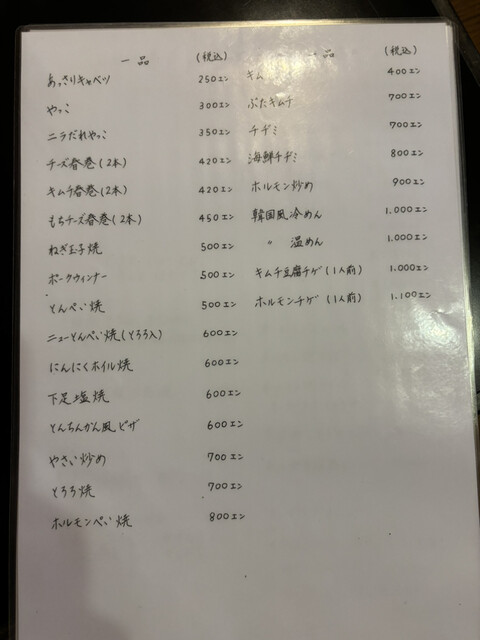 一品 (税込)
あっさりキャベツ 250エン
やっこ 300エン
ニラだれやっこ 350エン
チーズ春巻(2本) 420エン
キムチ春巻(2本) 420エン
もちチーズ春巻(2本) 450エン
ねぎ玉子焼 500エン
ポークウィンナー 500エン
とんぺい焼 500エン
ニューとんぺい焼(とろろ入) 600エン
にんにくホイル焼 600エン
下足塩焼 600エン
とんちんかん風ピザ 600エン
やさい炒め 700エン
とろろ焼 700エン
ホルモンぺい焼 800エン
一品 (税込)
キム 400エン
ぶたキムチ 700エン
チヂミ 700エン
海鮮チヂミ 800エン
ホルモン炒め 900エン
韓国風冷めん 1.000エン
〃 温めん 1.000エン
キムチ豆腐チゲ(1人前) 1.000エン
ホルモンチゲ(1人前) 1.100エン